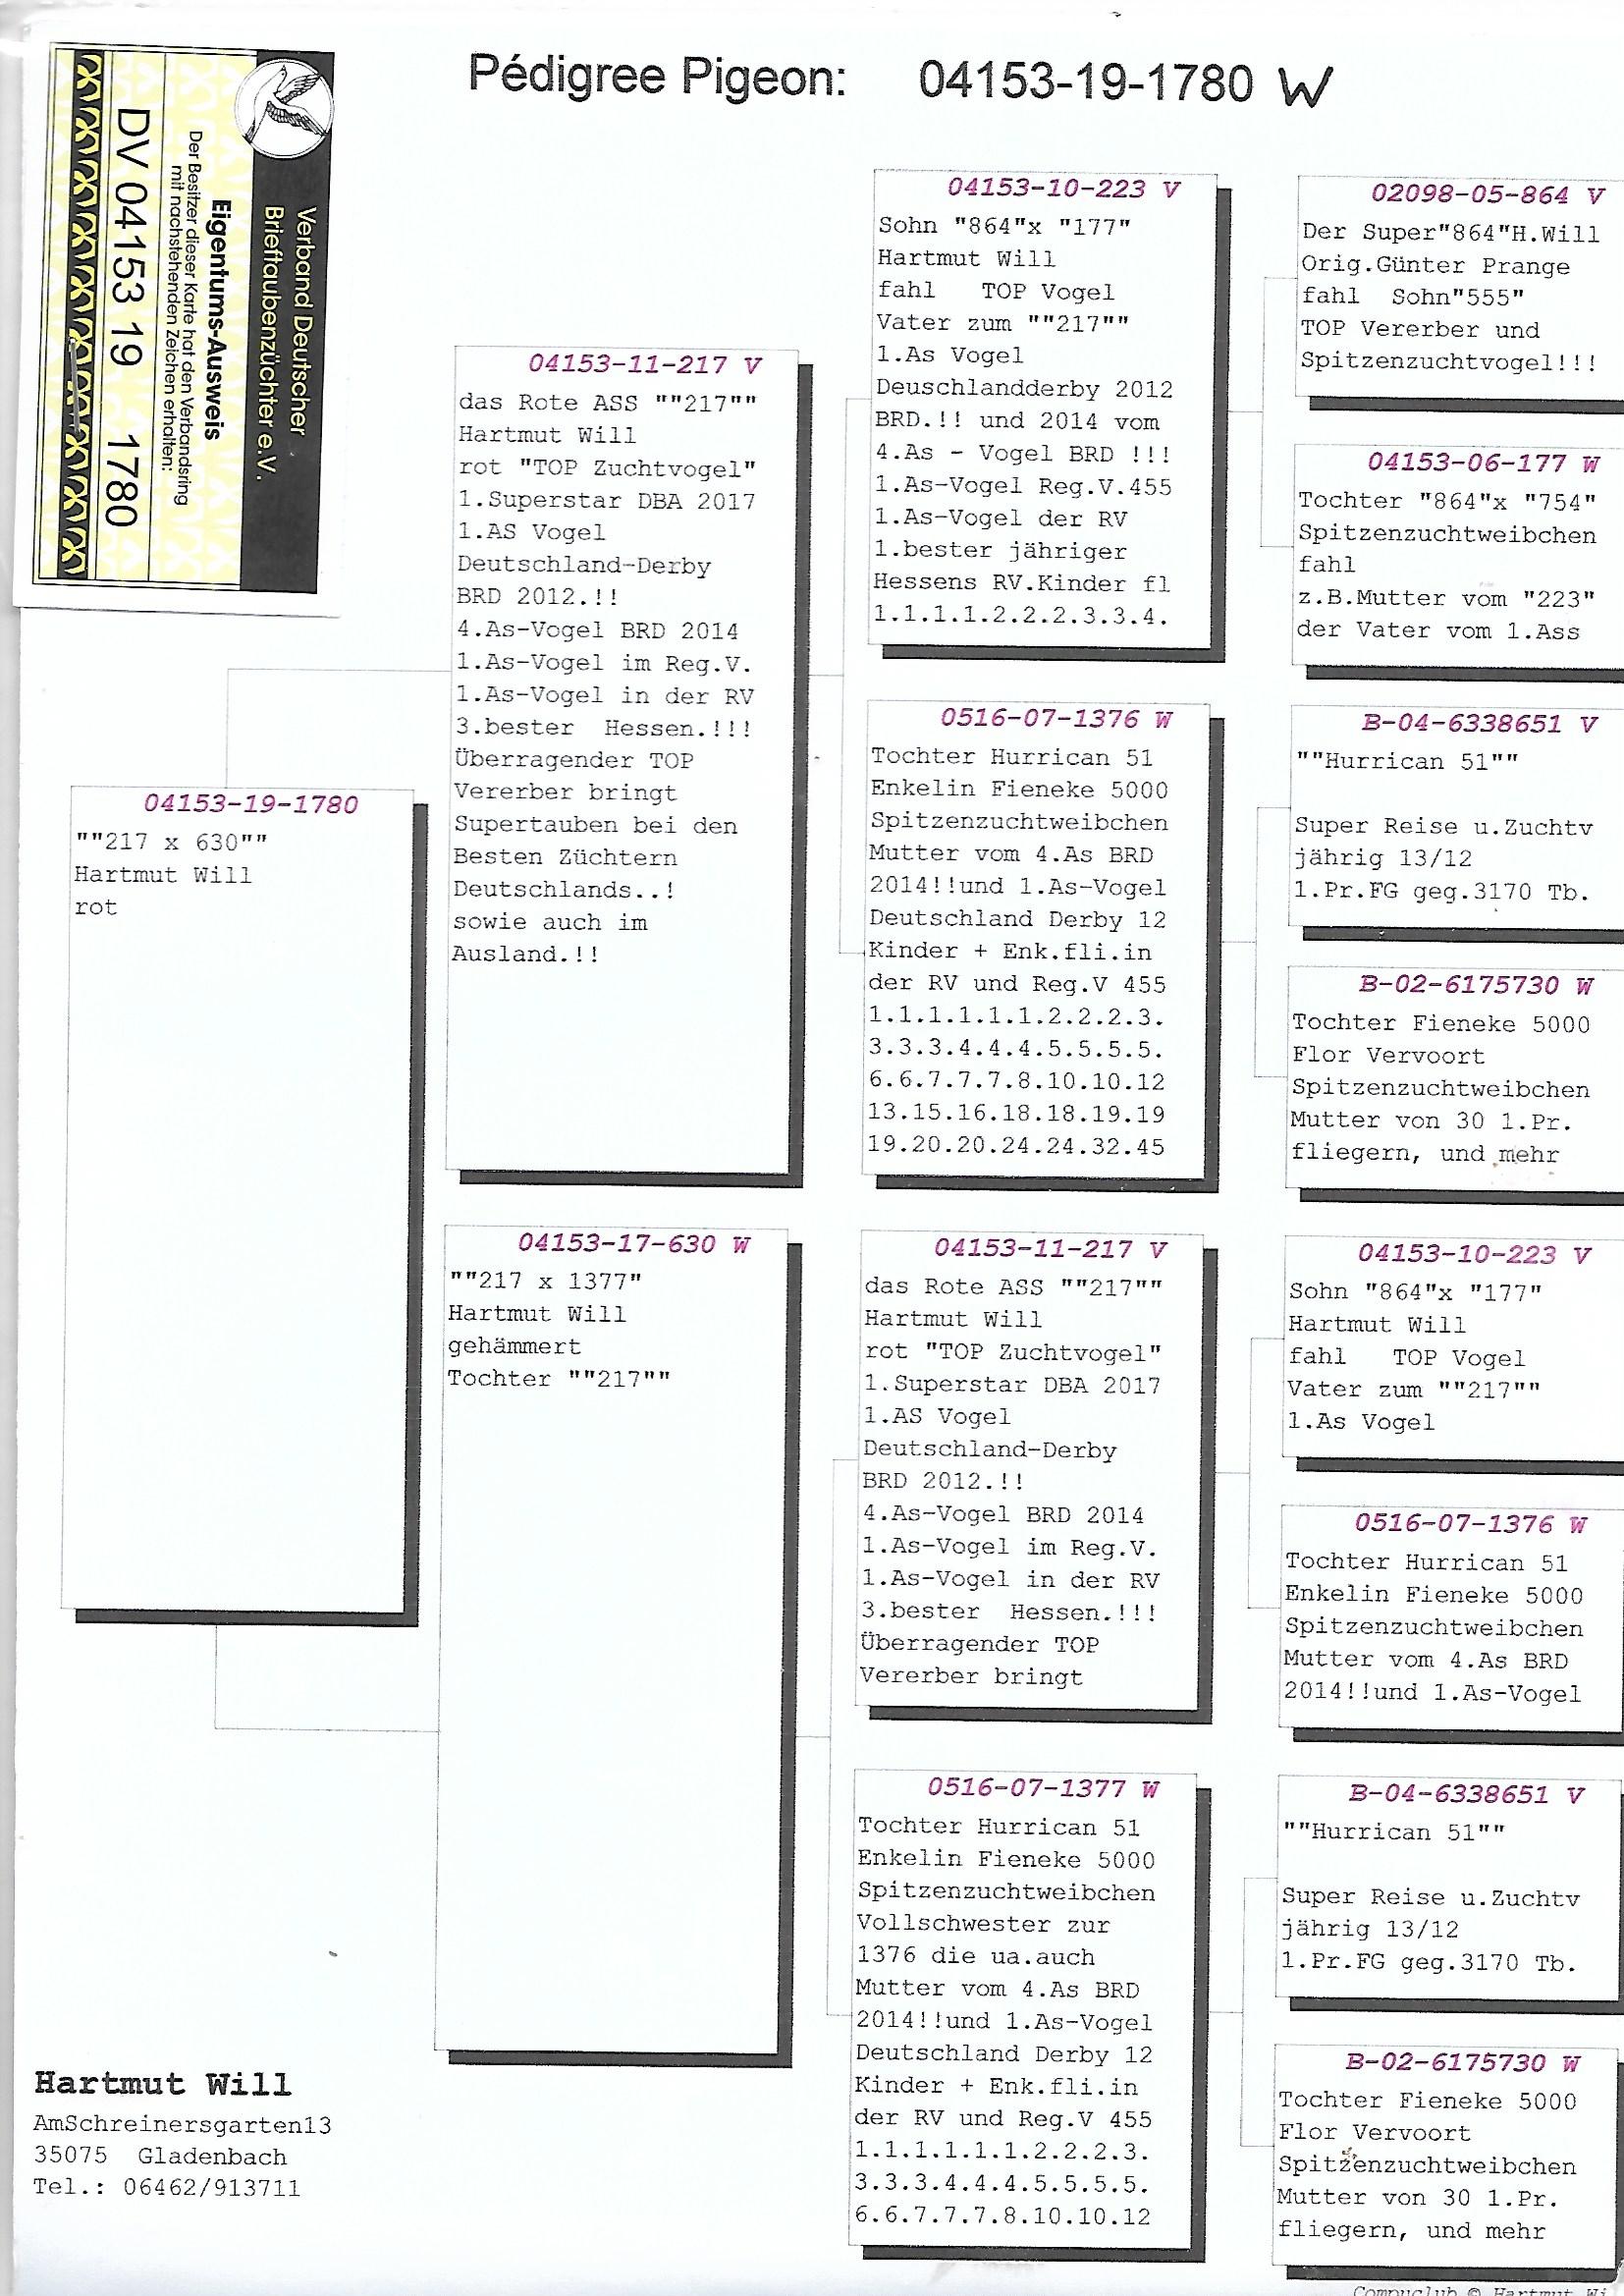 Pédigree Pigeon: 04153-19-1780 W
Verband Deutscher
Brieftaubenzüchter e.V.
Eigentums-Ausweis
Der Besitzer dieser Karte hat den Verbandsring
mit nachstehenden Zeichen erhalten:
DV 04153 19 1780
04153-19-1780
""217 x 630""
Hartmut Will
rot
04153-11-217 V
das Rote ASS ""217""
Hartmut Will
rot "TOP Zuchtvogel"
1.Superstar DBA 2017
1.AS Vogel
Deutschland-Derby
BRD 2012.!!
4.As-Vogel BRD 2014
1.As-Vogel im Reg.V.
1.As-Vogel in der RV
3.bester Hessen.!!!
Überragender TOP
Vererber bringt
Supertauben bei den
Besten Züchtern
Deutschlands..!
sowie auch im
Ausland.!!
04153-17-630 W
""217 x 1377"
Hartmut Will
gehämmert
Tochter ""217""
04153-10-223 V
Sohn "864"x "177"
Hartmut Will
fahl TOP Vogel
Vater zum ""217""
1.As Vogel
Deuschlandderby 2012
BRD.!! und 2014 vom
4.As - Vogel BRD !!!
1.As-Vogel Reg.V.455
1.As-Vogel der RV
1.bester jähriger
Hessens RV.Kinder fl
1.1.1.1.2.2.2.3.3.4.
0516-07-1376 W
Tochter Hurrican 51
Enkelin Fieneke 5000
Spitzenzuchtweibchen
Mutter vom 4.As BRD
2014!!und 1.As-Vogel
Deutschland Derby 12
Kinder + Enk.fli.in
der RV und Reg.V 455
1.1.1.1.1.1.2.2.2.3.
3.3.3.4.4.4.5.5.5.5.
6.6.7.7.7.8.10.10.12
13.15.16.18.18.19.19
19.20.20.24.24.32.45
04153-11-217 V
das Rote ASS ""217""
Hartmut Will
rot "TOP Zuchtvogel"
1.Superstar DBA 2017
1.AS Vogel
Deutschland-Derby
BRD 2012.!!
4.As-Vogel BRD 2014
1.As-Vogel im Reg.V.
1.As-Vogel in der RV
3.bester Hessen.!!!
Überragender TOP
Vererber bringt
0516-07-1377 W
Tochter Hurrican 51
Enkelin Fieneke 5000
Spitzenzuchtweibchen
Vollschwester zur
1376 die ua.auch
Mutter vom 4.As BRD
2014!!und 1.As-Vogel
Deutschland Derby 12
Kinder + Enk.fli.in
der RV und Reg.V 455
1.1.1.1.1.1.2.2.2.3.
3.3.3.4.4.4.5.5.5.5.
6.6.7.7.7.8.10.10.12
02098-05-864 V
Der Super"864"H.Will
Orig.Günter Prange
fahl Sohn"555"
TOP Vererber und
Spitzenzuchtvogel!!!
04153-06-177 W
Tochter "864"x "754"
Spitzenzuchtweibchen
fahl
z.B.Mutter vom "223"
der Vater vom 1.Ass
B-04-6338651 V
""Hurrican 51""
Super Reise u.Zuchtv
jährig 13/12
1.Pr.FG geg.3170 Tb.
B-02-6175730 W
Tochter Fieneke 5000
Flor Vervoort
Spitzenzuchtweibchen
Mutter von 30 1.Pr.
fliegern, und mehr
04153-10-223 V
Sohn "864"x "177"
Hartmut Will
fahl TOP Vogel
Vater zum ""217""
1.As Vogel
0516-07-1376 W
Tochter Hurrican 51
Enkelin Fieneke 5000
Spitzenzuchtweibchen
Mutter vom 4.As BRD
2014!!und 1.As-Vogel
B-04-6338651 V
""Hurrican 51""
Super Reise u.Zuchtv
jährig 13/12
1.Pr.FG geg.3170 Tb.
B-02-6175730 W
Tochter Fieneke 5000
Flor Vervoort
Spitzenzuchtweibchen
Mutter von 30 1.Pr.
fliegern, und mehr
Hartmut Will
AmSchreinersgarten13
35075 Gladenbach
Tel.: 06462/913711
Compuclub © Hartmut Wi